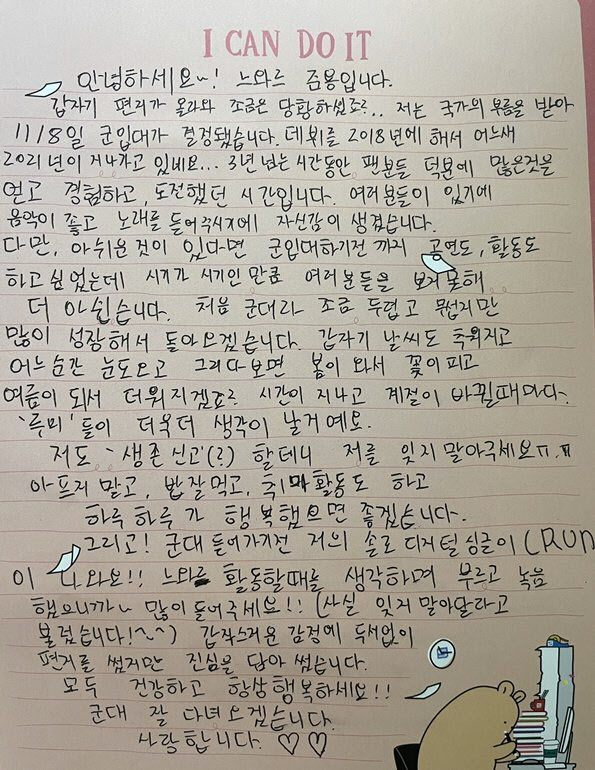 I CAN DO IT
안녕하세요~! 느와르 준용입니다.
갑자기 편지가 올라와 조금은 당황하셨죠?.. 저는 국가의 부름을 받아
11/8일 군입대가 결정됐습니다. 데뷔를 2018년에 해서 어느새
2021년이 지나가고 있네요... 3년 넘는 시간동안 팬분들 덕분에 많은것을
얻고 경험하고, 도전했던 시간입니다. 여러분들이 있기에
음악이 좋고 노래를 들어주시기에 자신감이 생겼습니다.
다만, 아쉬운 것이 있다면 군입대하기전 까지 공연도, 활동도
하고 싶었는데 시기가 시기인 만큼 여러분들을 보지못해
더 아쉽습니다. 처음 군대라 조금 두렵고 무섭지만
많이 성장해서 돌아오겠습니다. 갑자기 날씨도 추워지고
어느순간 눈도오고 그러다보면 봄이 와서 꽃이피고
여름이 되서 더워지겠죠? 시간이 지나고 계절이 바뀔때마다
'루미'들이 더욱더 생각이 날거예요.
저도 '생존신고'(?) 할테니 저를 잊지 말아주세요ㅠ.ㅠ
아프지 말고, 밥 잘먹고, 취미활동도 하고
하루하루가 행복했으면 좋겠습니다.
그리고! 군대 들어가기전 저의 솔로 디지털싱글이 (RUN)
이 나와요!! 느와르 활동할때를 생각하며 부르고 녹음
했으니까~ 많이 들어주세요!! (사실 잊지 말아달라고
불렀습니다!^~^) 갑작스러운 감정에 두서없이
편지를 썼지만 진심을 담아 썼습니다.
모두 건강하고 항상행복하세요!!
군대 잘 다녀오겠습니다.
사랑합니다. ♡♡